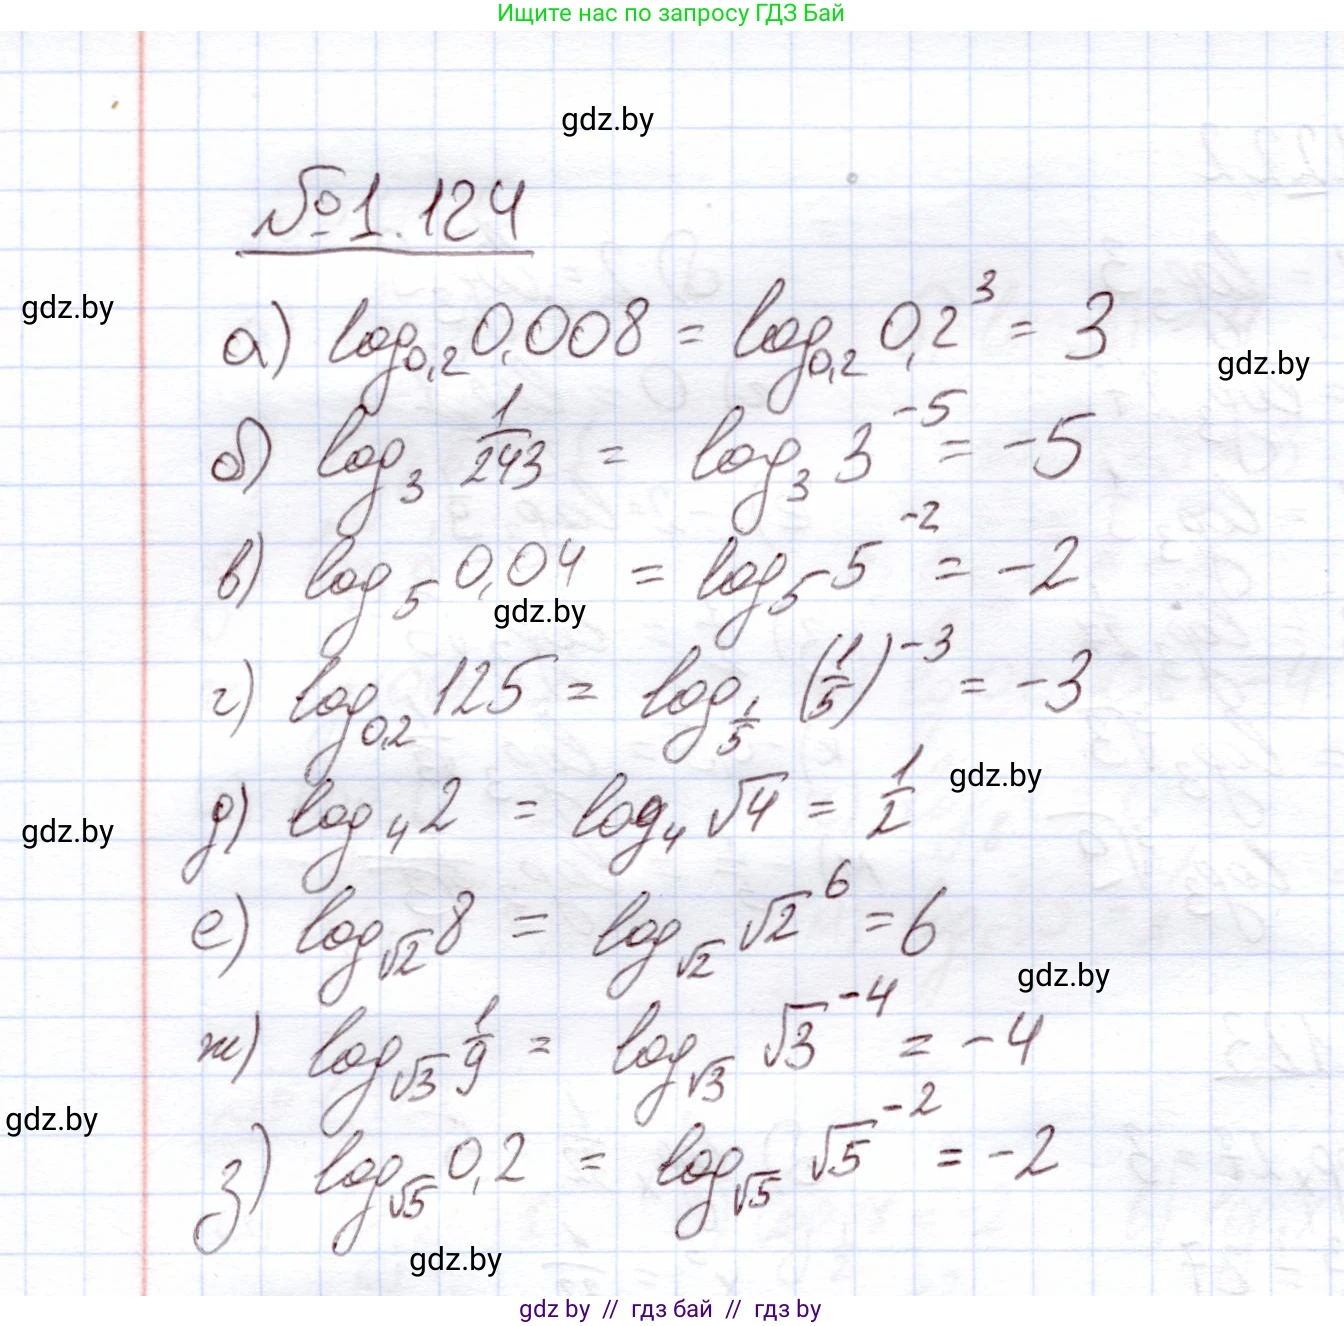 Ищите нас по запросу ГДЗ Бай
gdz.by
№1.124
gdz.by
а) log₀,₂ 0,008 = log₀,₂ 0,2³ = 3
gdz.by
б) log₃ 1/243 = log₃ 3⁻⁵ = -5
в) log₅ 0,04 = log₅ 5⁻² = -2
gdz.by
г) log₀,₂ 125 = log_{1/5} (1/5)⁻³ = -3
gdz.by
д) log₄ 2 = log₄ √4 = 1/2
gdz.by
е) log_{√2} 8 = log_{√2} √2⁶ = 6
gdz.by
ж) log_{√3} 1/9 = log_{√3} √3⁻⁴ = -4
gdz.by
з) log_{√5} 0,2 = log_{√5} √5⁻² = -2
gdz.by
gdz by // гдз бай // гдз by